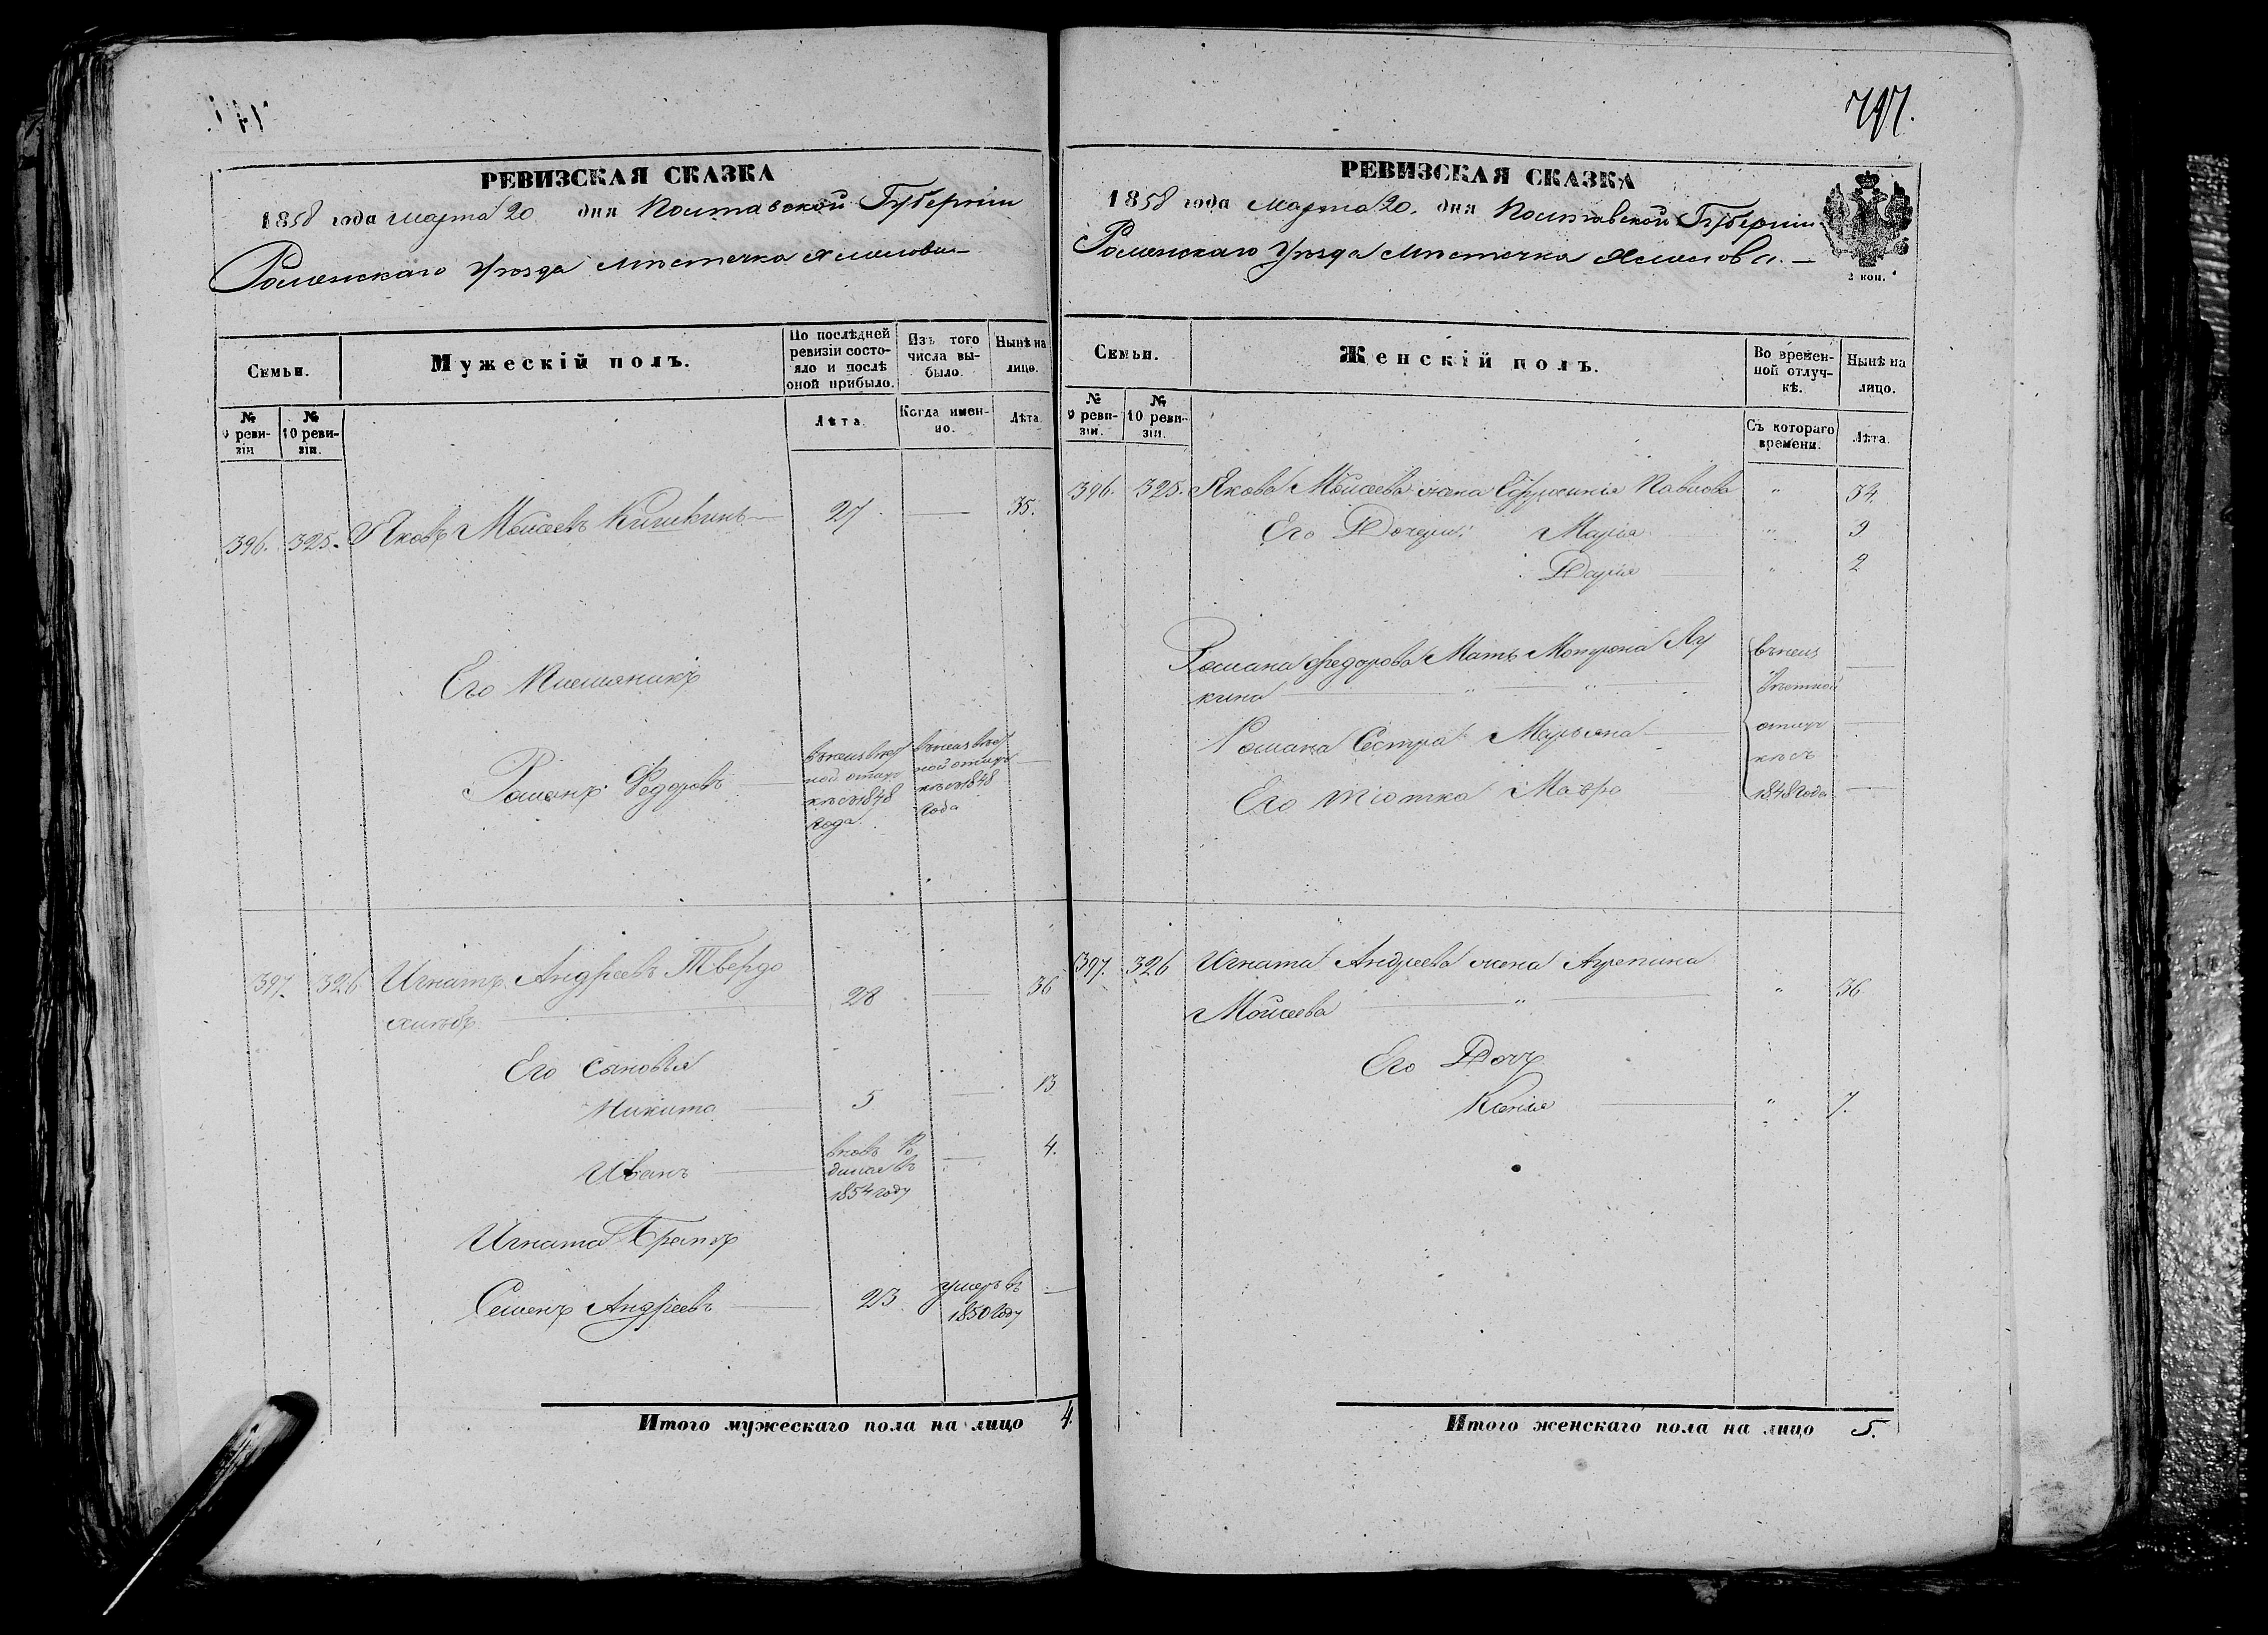 РЕВИЗСКАЯ СКАЗКА
1858 года марта 20 дня Полтавской Губерніи
Роменскаго Уѣзда Мѣстечка Хмелова
Семьи.
Мужескій полъ.
По послѣдней ревизіи состояло и послѣ оной прибыло.
Изъ того числа выбыло.
Нынѣ на лицо.
№ 9 ревизіи
№ 10 ревизіи.
Лѣта.
Когда именно.
Лѣта.
396. 325. Яковъ Мойсеевъ Кишкинъ 27 — 35.
Его Племяникъ
Романъ Федоровъ
въ неизвѣст
ной отлуч
кѣ съ 1848
года
въ неизвѣст
ной отлуч
кѣ съ 1848
года
397. 326 Игнатъ Андреевъ Твердо
хлѣбъ 28 — 36
Его Сыновья
Никита 5 — 13
Иванъ — 4.
вновь Ро
дился въ
1854 году
Игната Братъ
Семенъ Андреевъ 23
умеръ въ
1850 году
Итого мужескаго пола на лицо 4.
747.
РЕВИЗСКАЯ СКАЗКА
1858 года марта 20. дня Полтавской Губерніи
Роменскаго Уѣзда Мѣстечка Хмелова.
2 коп.
Семьи.
Женскій полъ.
Во временной отлучкѣ.
Нынѣ на лицо.
№ 9 ревизіи.
№ 10 ревизіи.
Съ котораго времени.
Лѣта.
396. 325. Якова Мойсеева жена Ефросинія Павлова " 34
Его Дочери: Марія " 9
Дарія " 2
Романа Федорова Мать Мотрона Лу
кина
Романа Сестра Марьяна
Его тіотка Мавра
въ неиз
вѣстной
отлуч
кѣ съ
1848 года
397. 326 Игната Андреева жена Агрепина
Мойсеева " 36
Его Дочь
Ксенія " 7.
Итого женскаго пола на лицо 5.